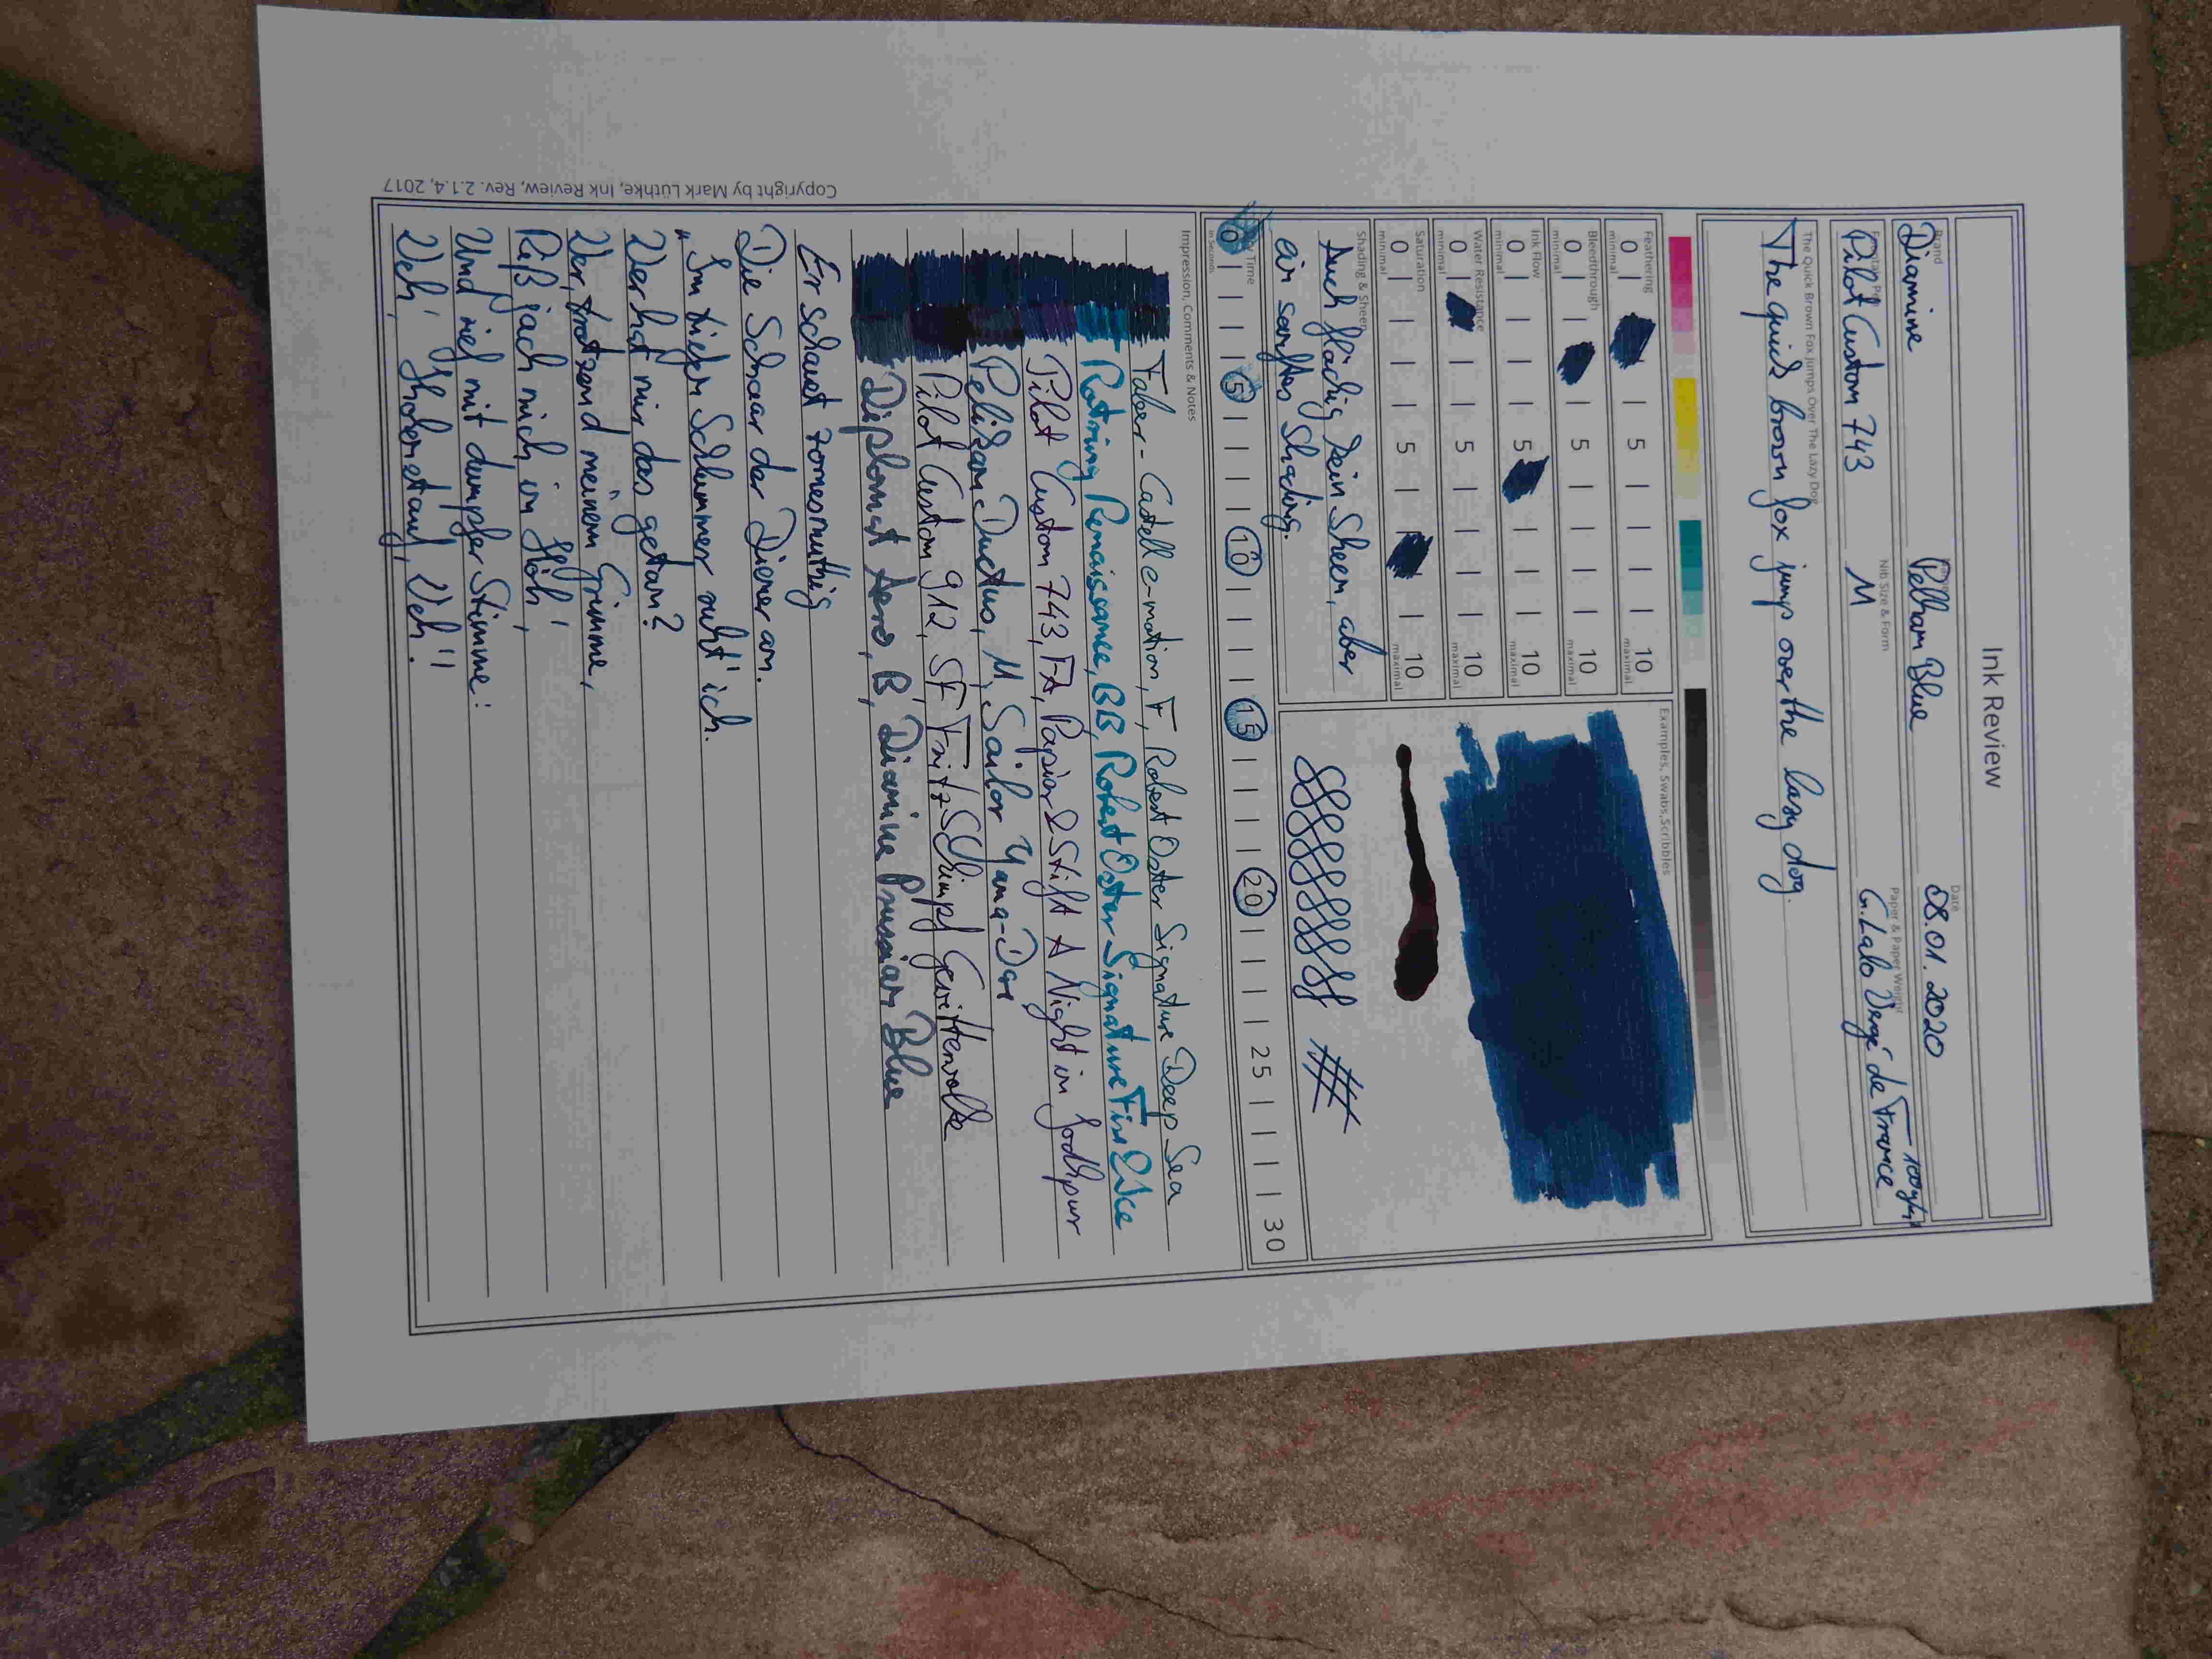 Ink Review
Brand
Diamine
Pelham Blue
Date
28.01.2020
Pilot Custom 743
Nib Size & Form
M
Paper & Paper Weight
G. Lalo Vergé de France
The Quick Brown Fox Jumps Over The Lazy Dog
The quick brown fox jumps over the lazy dog.
Feathering
0 5 10
minimal maximal
Bleedthrough
0 5 10
minimal maximal
Ink Flow
0 5 10
minimal maximal
Water Resistance
0 5 10
minimal maximal
Saturation
0 5 10
minimal maximal
Shading & Sheen
Auch flächig kein Sheen, aber
ein sanftes Shading.
Examples, Swabs, Scribbles
Time
in Seconds
0 5 10 15 20 25 30
Impression, Comments & Notes
Faber-Castell e-motion, F, Robert Oster Signature Deep Sea
Rotring Renaissance, BB, Robert Oster Signature Fire & Ice
Pilot Custom 743, FA, Papier & Stift A Night in Jodhpur
Pelikan Ductus, M, Sailor Yama-Dori
Pilot Custom 912, SF Fritz Schimpf Gewitterwolke
Diplomat Aero, B, Diamine Prussian Blue
Er schauet zornesmuthig
Die Schaar der Diener an.
"Im tiefen Schlummer ruht' ich.
Wer hat mir das getan?
Wer, trotzend meinem Grimme,
Riß jach mich in die Höh',
Und rief mit dumpfer Stimme:
Weh', Hohenstauf, Weh'!
Copyright by Mark Lüthke, Ink Review, Rev. 2.1.4, 2017